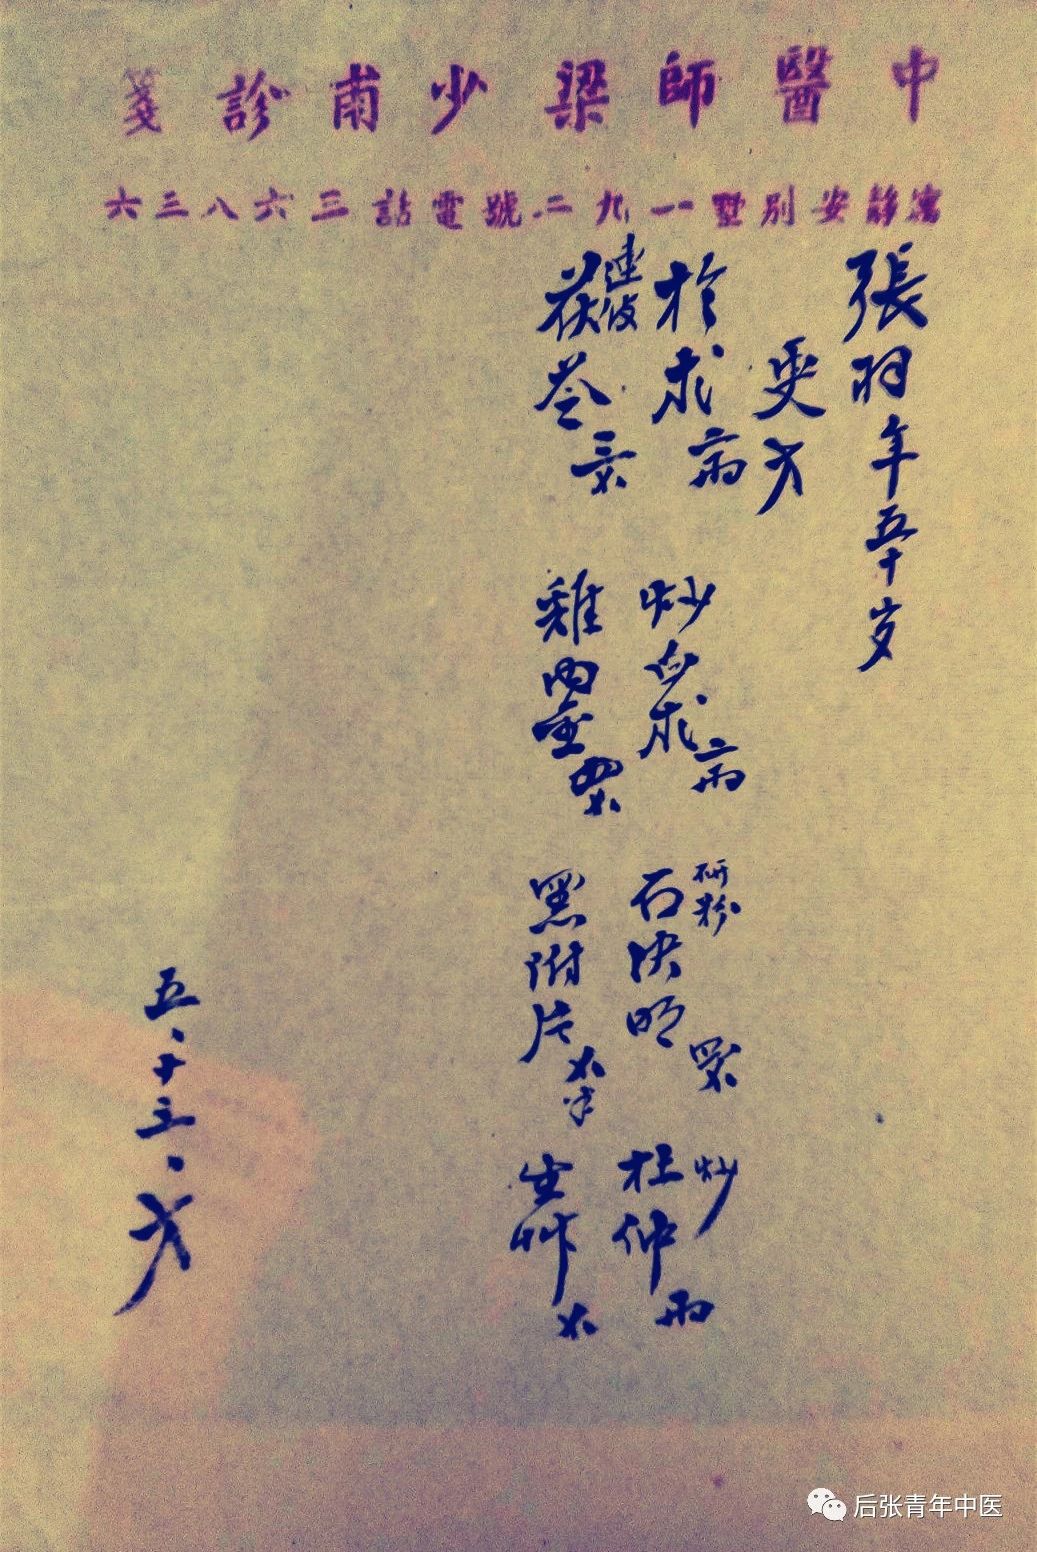 中醫師梁少甫診箋
寓靜安別墅一九二號電話三六八三六
張羽年五十岁
更方
於术一两 炒白术一两 研粉 石决明 炒 杜仲一两
連皮 茯苓三錢 雞内金 黑附片錢半 生草錢
五、十三、方
后张青年中医